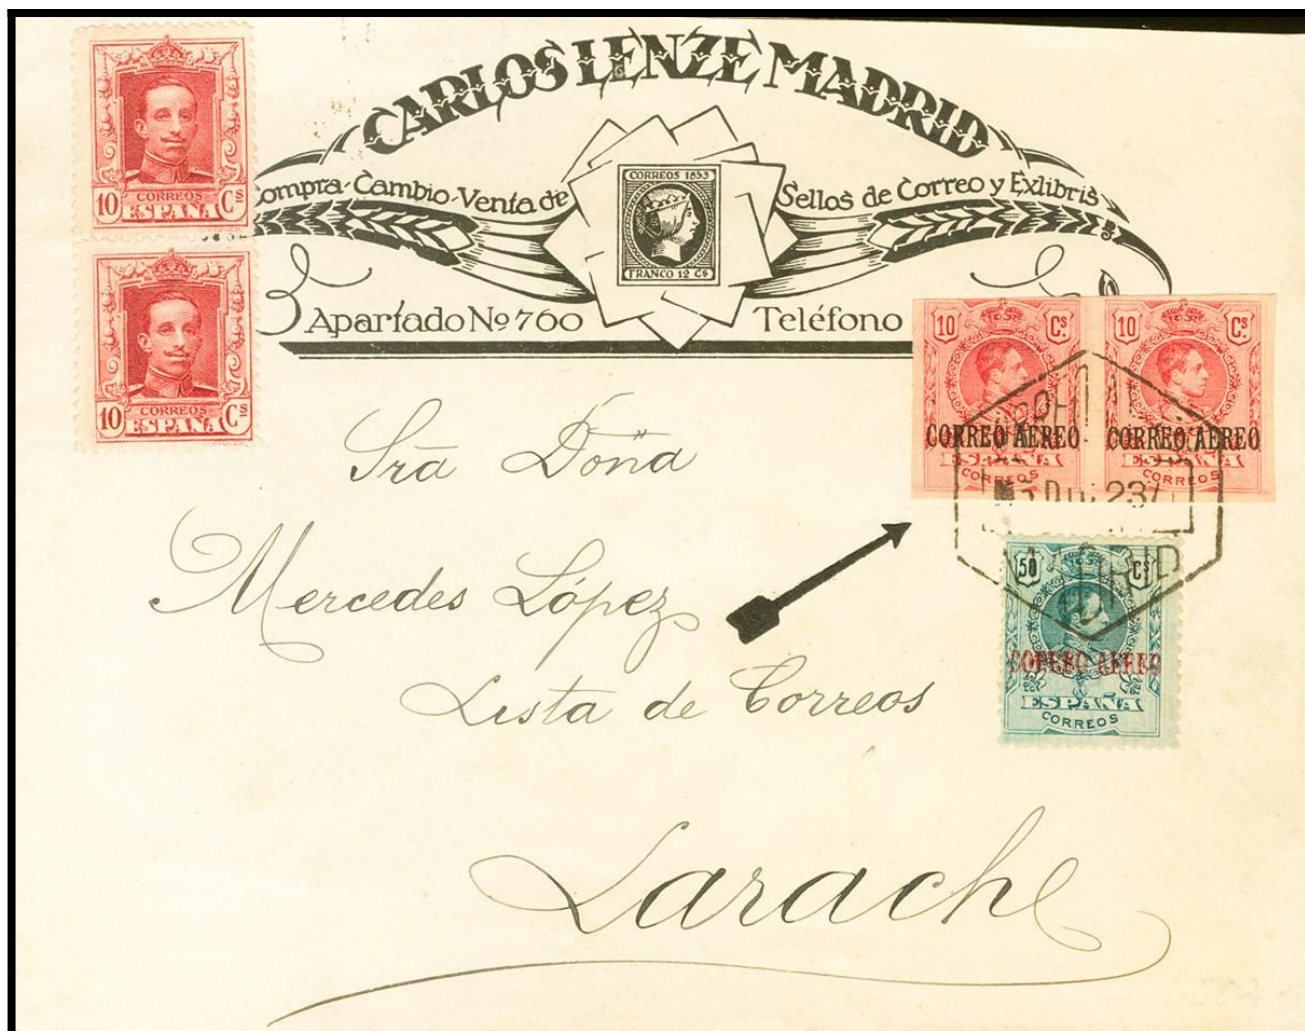 CARLOS LENZE MADRID
Compra-Cambio-Venta de
Sellos de Correo y Exlibris
CORREOS 1853
FRANCO 12 Cs
Apartado No 760
Teléfono
10 CORREOS Cs
ESPAÑA
10 CORREOS Cs
ESPAÑA
10 Cs
CORREO AEREO
ESPAÑA
CORREOS
10 Cs
CORREO AEREO
ESPAÑA
CORREOS
DIC 23
MADRID
50 Cs
CORREO AEREO
ESPAÑA
CORREOS
Sra Doña
Mercedes López
Lista de Correos
Larache